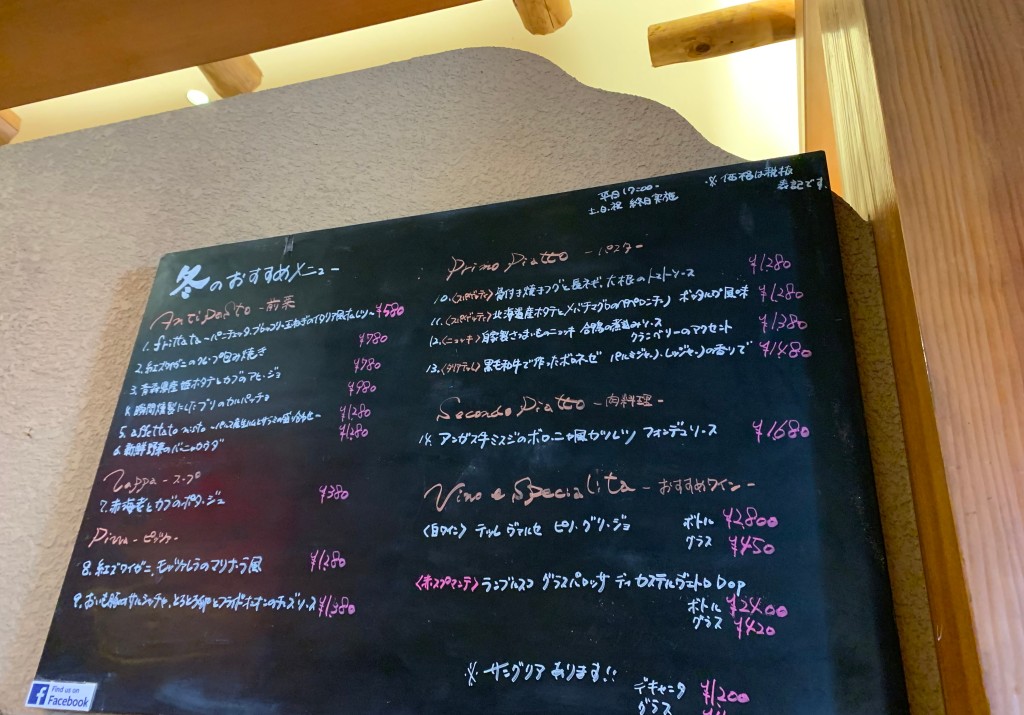 平日17:00-
土日・祝 終日実施
※価格は税抜
表記です。
冬のおすすめメニュー
Antipasto -前菜-
1. frittata ¥580
2. 紅ズワイガニのクレープ包み焼き ¥780
3. 青森県産姫ホタテとカブのアヒージョ ¥780
4. 瞬間燻製にしたブリのカルパッチョ ¥980
5. affettato misto ¥1280
6. 新鮮野菜のバーニャカウダ ¥1280
Zuppa -スープ
7. 赤海老とカブのポタージュ ¥380
Pizza -ピッツァ-
8. 紅ズワイガニ、モッツァレラのマリナーラ風 ¥1,280
9. とろとろ卵とフライドオニオンのチーズソース ¥1,380
Primo Piatto -パスタ-
10. (スパゲッティ) 骨付き焼きフグと長ネギ、大根のトマトソース ¥1,280
11. (スパゲッティ) 北海道産ホタテと ボッタルガ風味 ¥1,280
12. (ニョッキ) 自家製さつまいものニョッキ 合鴨の煮込みソース ¥1,380
クランベリーのアクセント
13. (タリアテッレ) 黒毛和牛で作ったボロネーゼ パルミジャーノ・レッジャーノの香りで ¥1,480
Secondo Piatto -肉料理-
14. アンガス牛ミスジのボローニャ風カツレツ フォンデュソース ¥1,680
Vino e Specialita -おすすめワイン-
(白ワイン) テッレ ヴァルセ ピノ・グリージョ ボトル ¥2,800
グラス ¥450
(赤スプマンテ) ランブルスコ グラスパロッサ ディ カステルヴェトロ Dop
ボトル ¥2400
グラス ¥420
※サングリアあります!!
デキャンタ ¥1,200
グラス
Find us on
Facebook